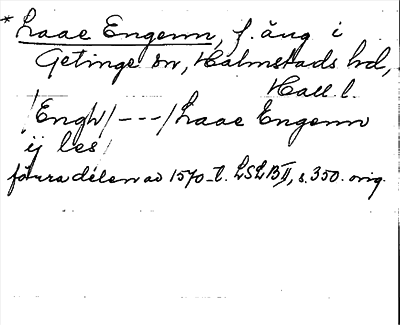 * Laae Engenn, f. äng i
Getinge sn, Halmstads hd,
Hall. l.
/Engh/---/Laae Engenn
ij les
förra delen av 1570-t. LSLB II, s. 350. orig.